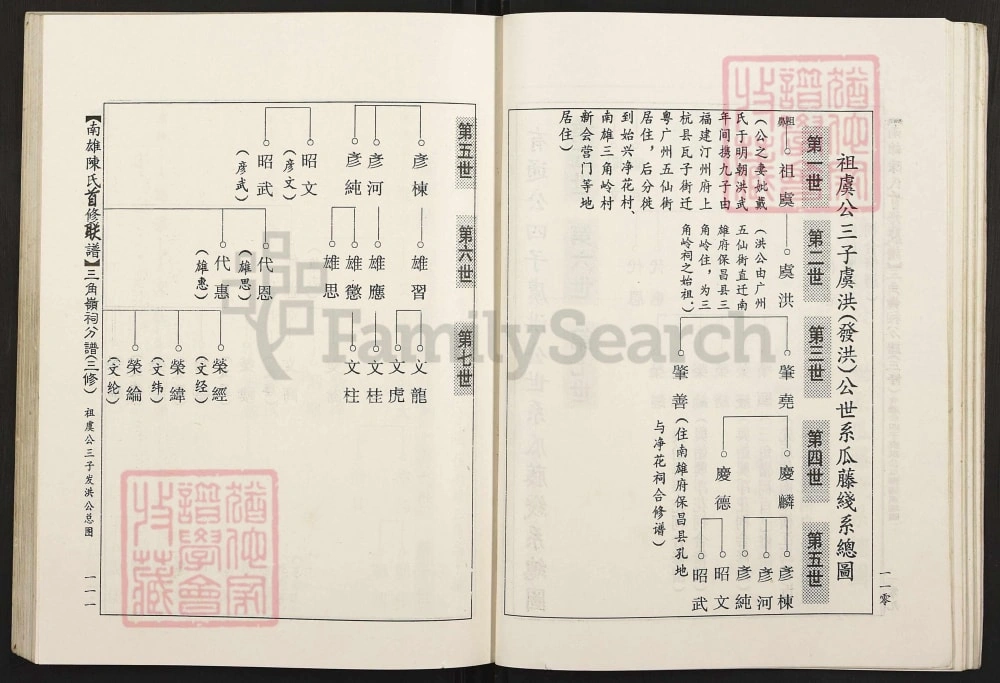 祖虞公三子虞洪(發洪)公世系瓜藤綫系總圖
第一世
第二世
第三世
第四世
第五世
祖虞
(公之妻妣戴
氏于明朝洪武
年间携九子由
福建汀州府上
杭县瓦子街迁
粤广州五仙街
居住,后分徙
到始兴净花村、
南雄三角岭村
新会营门等地
居住)
虞洪
(洪公由广州
五仙街直迁南
雄府保昌县三
角岭住,为三
角岭祠之始祖。)
肇堯
肇善
(住南雄府保昌县孔地
与净花祠合修谱)
慶麟
慶德
彦棟
彦河
彦純
昭文
昭武
一一零
第五世
第六世
第七世
彦棟
彦河
彦純
昭文
(彦文)
昭武
(彦武)
雄習
雄應
雄懲
雄思
代恩
(雄思)
代惠
(雄惠)
文龍
文虎
文桂
文柱
榮經
(文经)
榮緯
(文纬)
榮綸
(文纶)
【南雄陳氏首修联譜】三角嶺祠分譜(三修)
祖虞公三子发洪公总图
一一一
FamilySearch